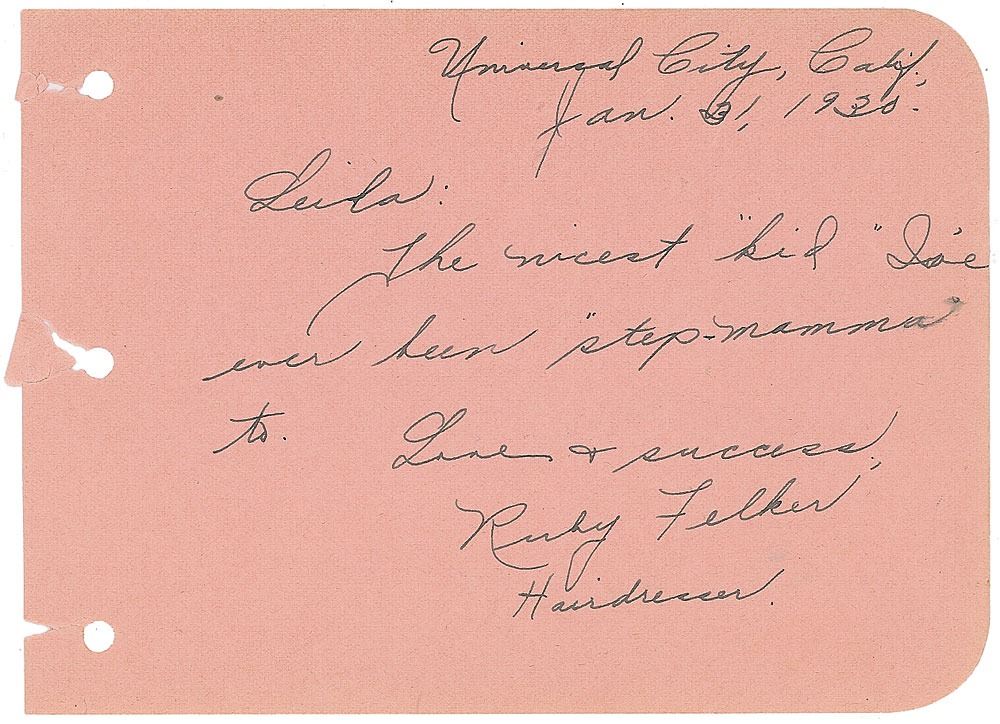 Universal City, Calif.,
Jan. 31, 1930.
Leila:
The nicest "kid" I've
ever been "step-mamma"
to. Love & success,
Ruby Felker
Hairdresser.